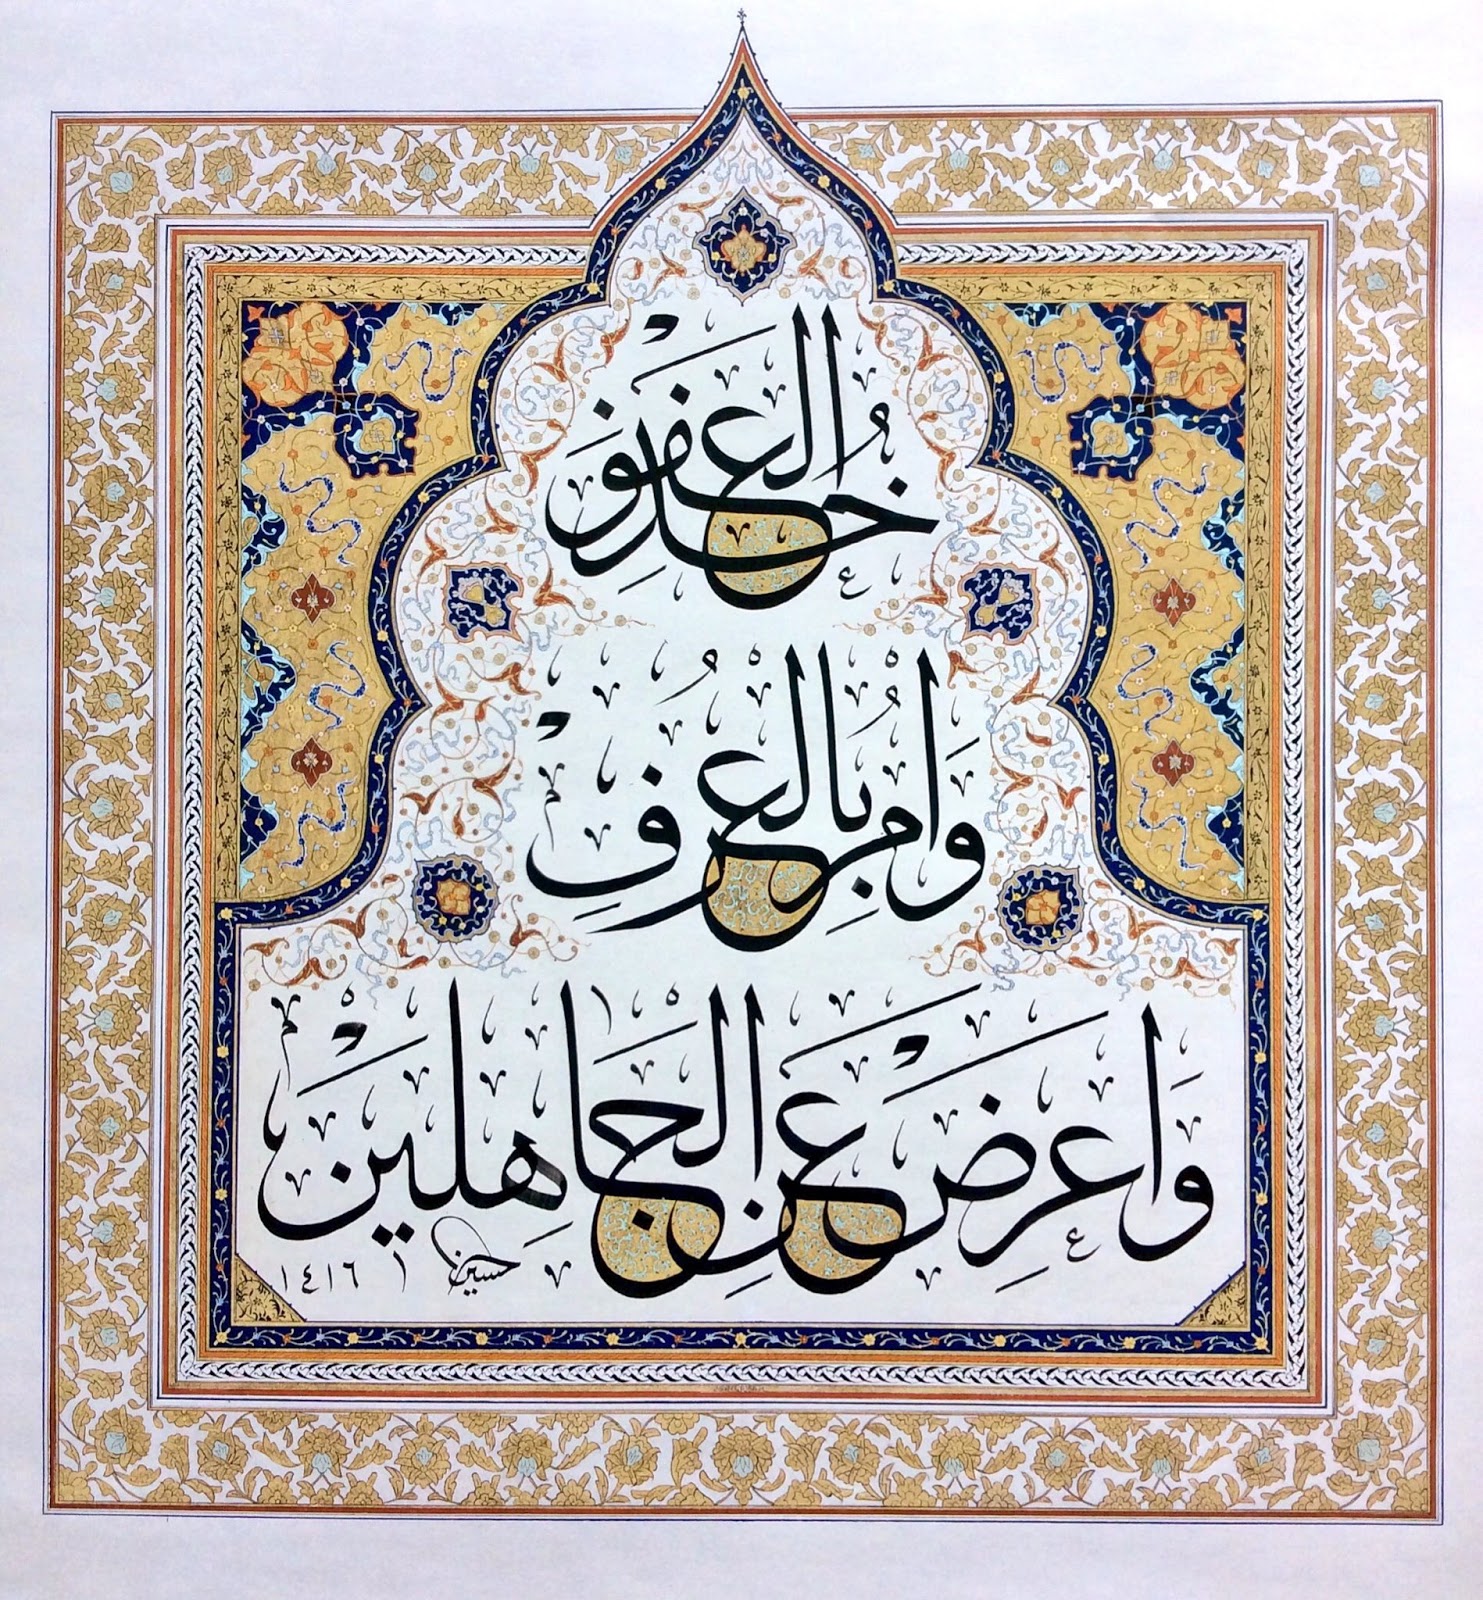 خُذِ الْعَفْوَ
وَأْمُرْ بِالْعُرْفِ
وَأَعْرِضْ عَنِ الْجَاهِلِينَ
حسين ١٤١٦